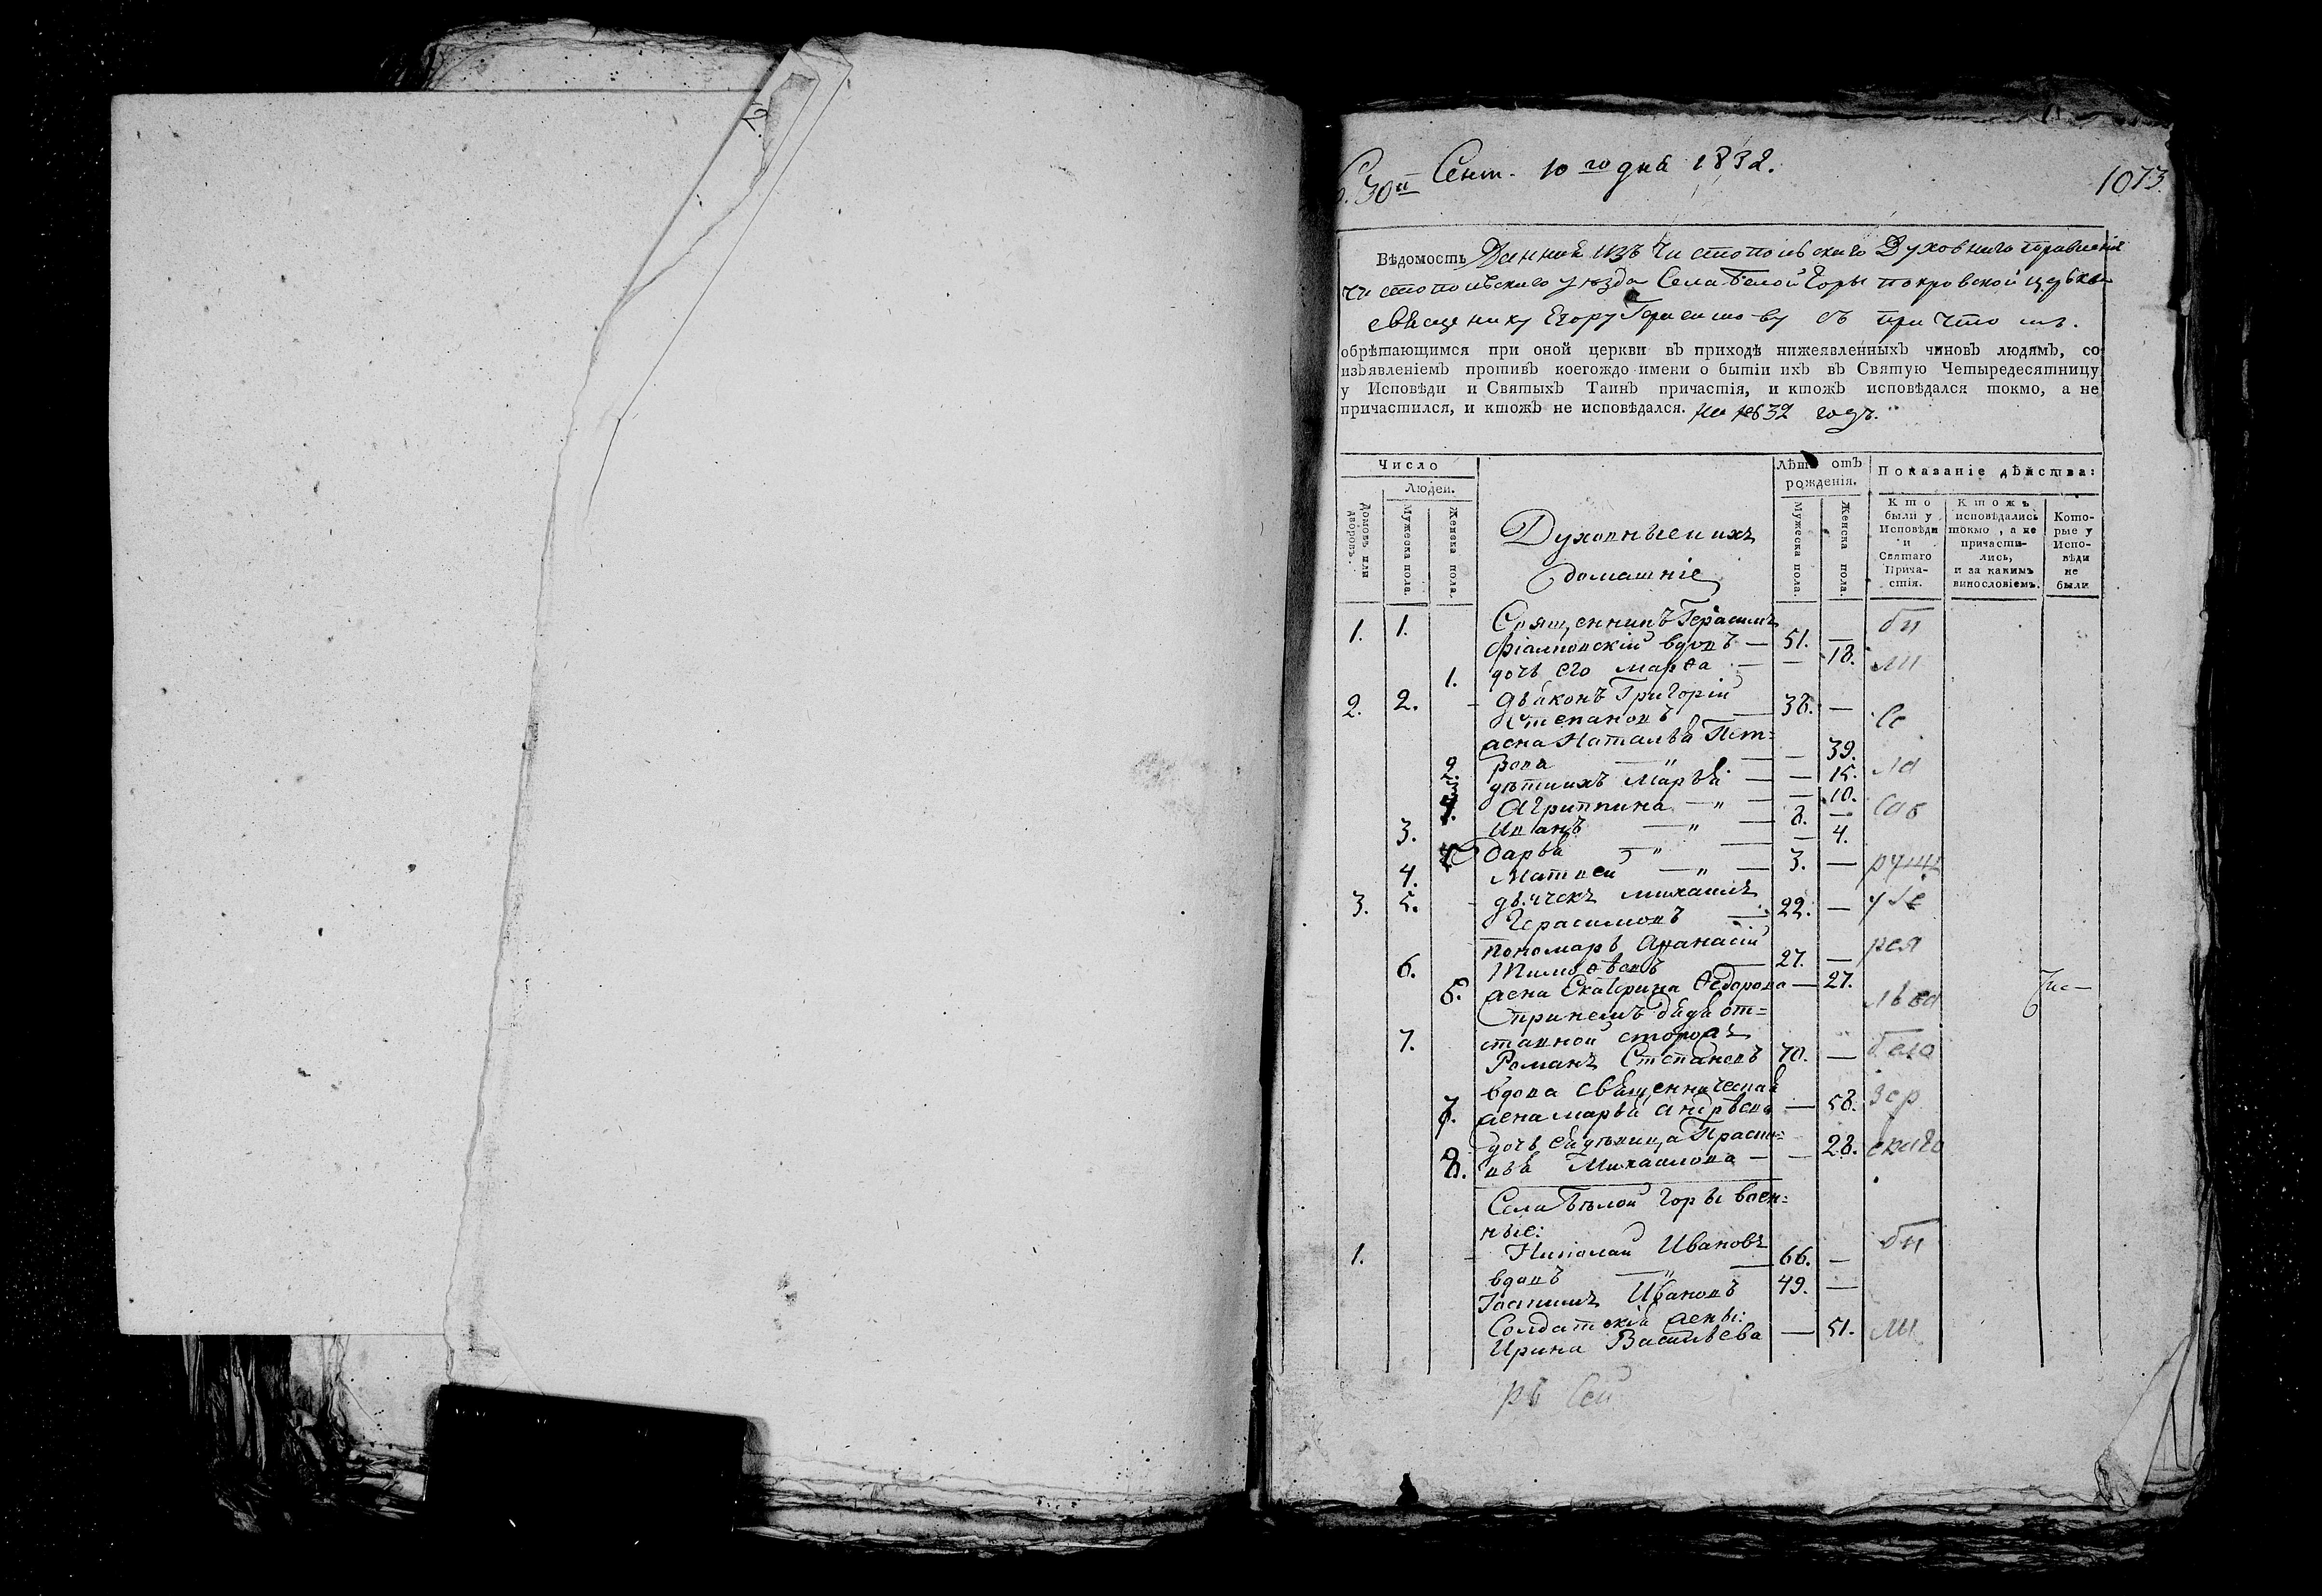 Сент. 10 го дня 1832.
1073.
Вѣдомость Данная изъ Чистопольскаго Духовнаго правленія
Чистопольскаго уѣзда Села Белой Горы покровской церкви
священнику Егору Герасимову съ причтомъ.
обрѣтающимся при оной церкви въ приходѣ нижеявленныхъ чиновъ людямъ, со
изъявленіемъ противъ коегождо имени о бытіи ихъ въ Святую Четыредесятницу
у Исповѣди и Святыхъ Таинъ причастія, и ктожъ исповѣдался токмо, а не
причастился, и ктожъ не исповѣдался. на 1832 годъ.
Число
Людей.
Домовъ или дворовъ.
Мужеска пола.
Женска пола.
Духовные и ихъ
домашніе
Лѣтъ отъ
рожденія.
Мужеска пола.
Женска пола.
Показаніе дѣйства:
Кто
были у
Исповѣди
и
Святаго
Прича-
стія.
Ктожъ
исповѣдались
токмо, а не
причасти-
лись,
и за какимъ
винословіемъ.
Кото-
рые у
Испо-
вѣди
не
были
1. 1. Священникъ Герасимъ
вдовъ — 51. — бы
1. дочь его Марѳа — — 18. ли
2. 2. дьяконъ Григорій
Степановъ — 38. — Се
жена Наталья Пет=
2. рова — „ — — 39. ла
3. дѣти ихъ Марья — — 15.
4. Агриппина — „ — — 10. Сав
3. Иванъ — „ — 8. —
Дарья — „ — — 4.
4. Матвей — „ — 3. — руш
3. 5. дьячекъ михаилъ
Герасимовъ — 22. —
пономарь Афанасій рея
6. Тимоѳеевъ — 27. —
6. жена Екатерина Ѳедорова — 27.
от=
7. ставной сторожъ
Романъ Степановъ 70. — бело
вдова священническая
7. жена марья андрѣева — 58. зер
дочь ея дѣвица Праско=
8. вья Михаилова — — 28. скаго
Села Бѣлой Горы воен=
ные:
1. Николай Ивановъ бы
вдовъ — „ — 66. —
Іоакимъ Ивановъ 49. —
Солдатскія жены:
Ирина Васильева — 51. лы